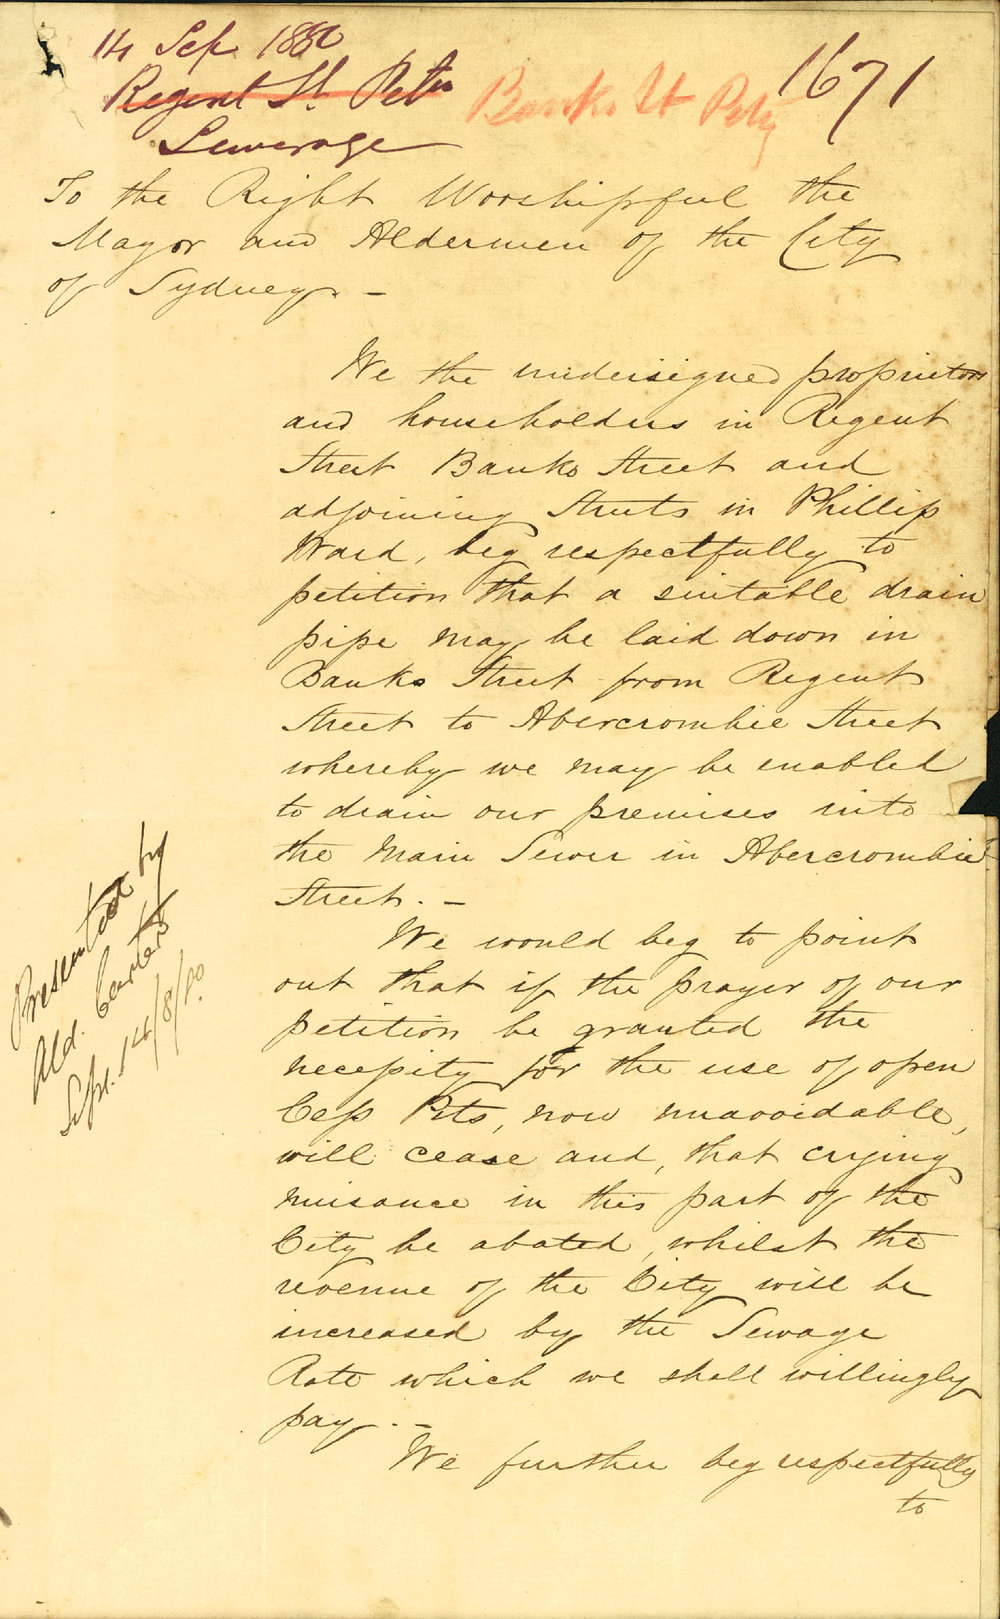 14 Sep 1880
1671
Regent St. Petn
Banks St Petn
Sewerage
To the Right Worshipful the
Mayor and Aldermen of the City
of Sydney. -
We the undersigned proprietors
and householders in Regent
Street Banks Street and
adjoining Streets in Phillip
Ward, beg respectfully to
petition that a suitable drain
pipe may be laid down in
Banks Street from Regent
Street to Abercrombie Street
whereby we may be enabled
to drain our premises into
the Main Sewer in Abercrombie
Street. -
We would beg to point
out that if the prayer of our
petition be granted the
necessity for the use of open
Cess Pits, now unavoidable,
will cease and, that crying
nuisance in this part of the
City be abated, whilst the
revenue of the City will be
increased by the Sewage
Rate which we shall willingly
pay. -
We further beg respectfully
to
Presented by
Ald. Carter
Sepr. 14/8/80.